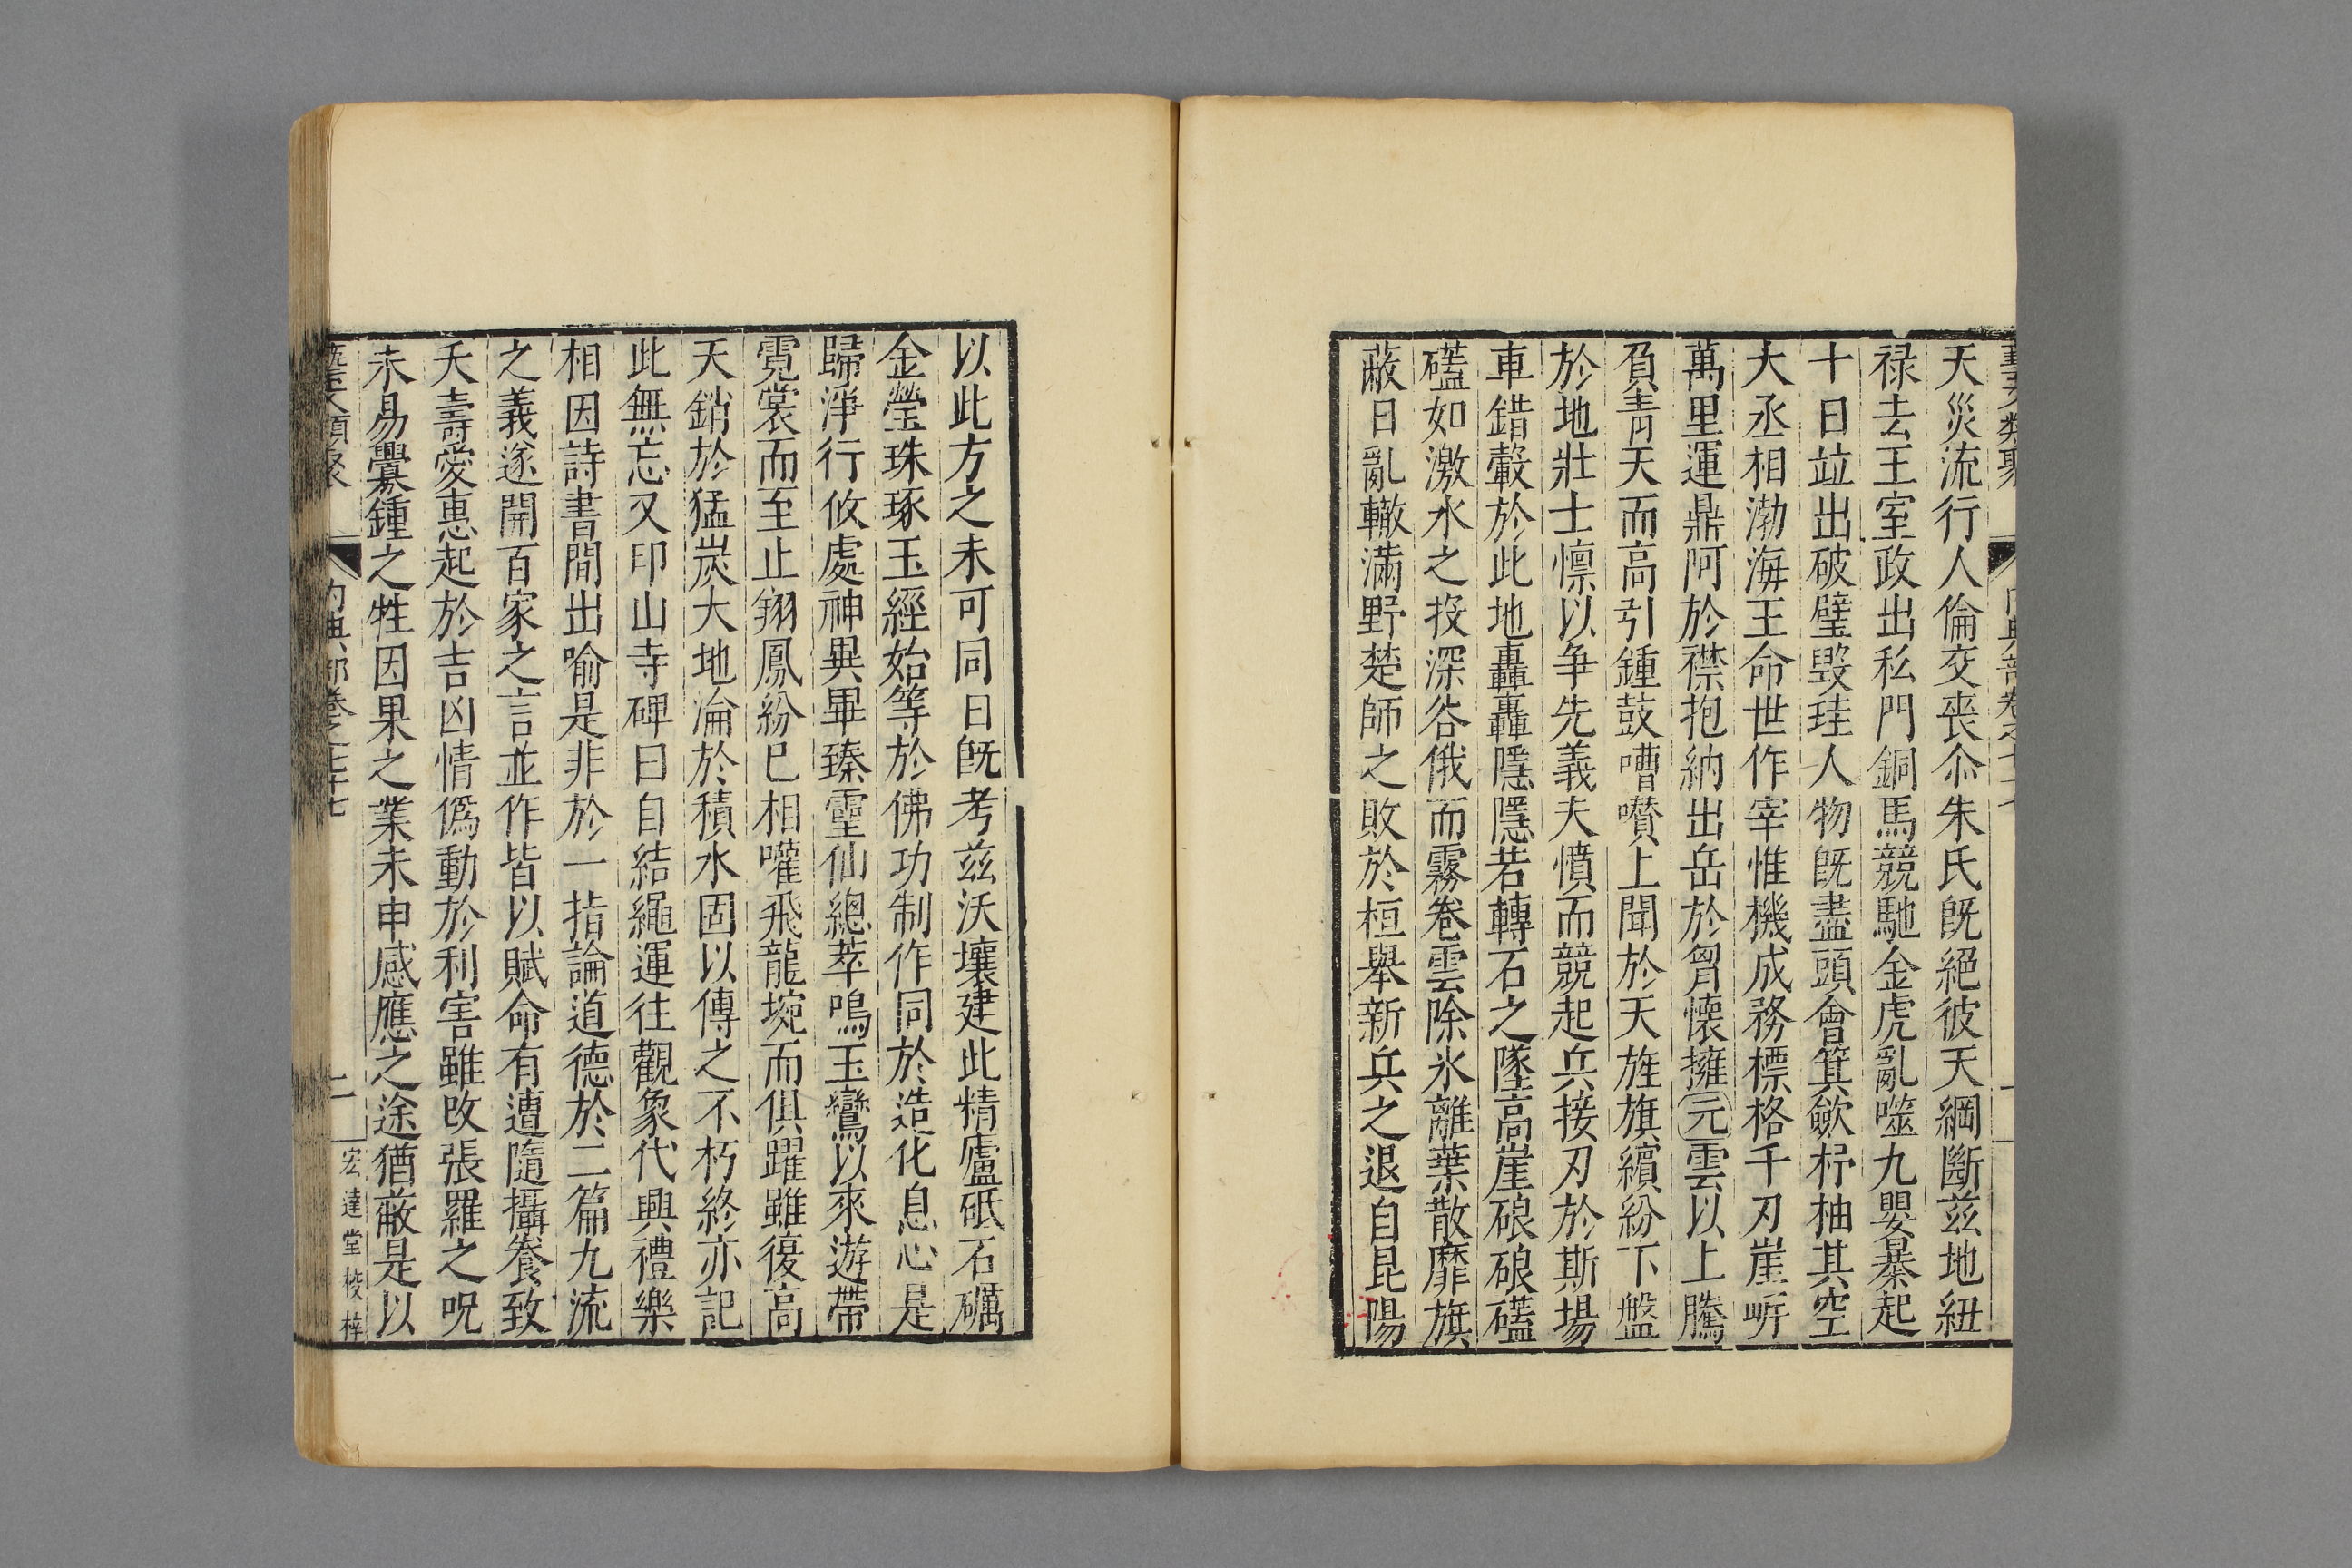 天災流行人倫交喪尒朱氏旣絕彼天綱斷兹地紐
禄去王室政出私門銅馬競馳金虎亂噬九嬰暴起
十日竝出破璧毁珪人物旣盡頭會箕歛杼柚其空
大丞相渤海王命世作宰惟機成務標格千刃崖岸
萬里運鼎阿於襟抱納出岳於胷懷擁元雲以上騰
負青天而高引鍾鼓嘈囋上聞於天旌旗繽紛下盤
於地壯士懍以争先義夫憤而競起兵接刃於斯場
車錯轂於此地轟轟隱隱若轉石之墜高崖硠硠礚
礚如激水之投深谷俄而霧卷雲除氷離葉散靡旗
蔽日亂轍滿野楚師之敗於桓舉新兵之退自昆陽
以此方之未可同日旣考兹沃壤建此精廬砥石礪
金瑩珠琢玉經始等於佛功制作同於造化息心是
歸淨行攸處神異畢臻靈仙總萃鳴玉鸞以來遊帶
霓裳而至止翔鳳紛巳相嚾飛龍埦而俱躍雖復高
天銷於猛炭大地淪於積水固以傳之不朽終亦記
此無忘又印山寺碑曰自結繩運往觀象代興禮樂
相因詩書間出喻是非於一指論道德於二篇九流
之義遂開百家之言並作皆以賦命有遭隨攝養致
夭壽愛惠起於吉凶情僞動於利害雖改張羅之呪
未易釁鍾之牲因果之業未申感應之途猶蔽是以
藝文類聚 内典部卷之七十七 二 宏達堂校梓